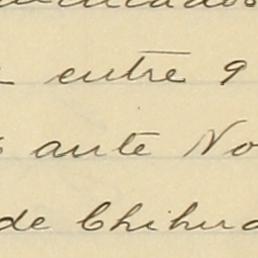 entre 9
ante No
de Chihua